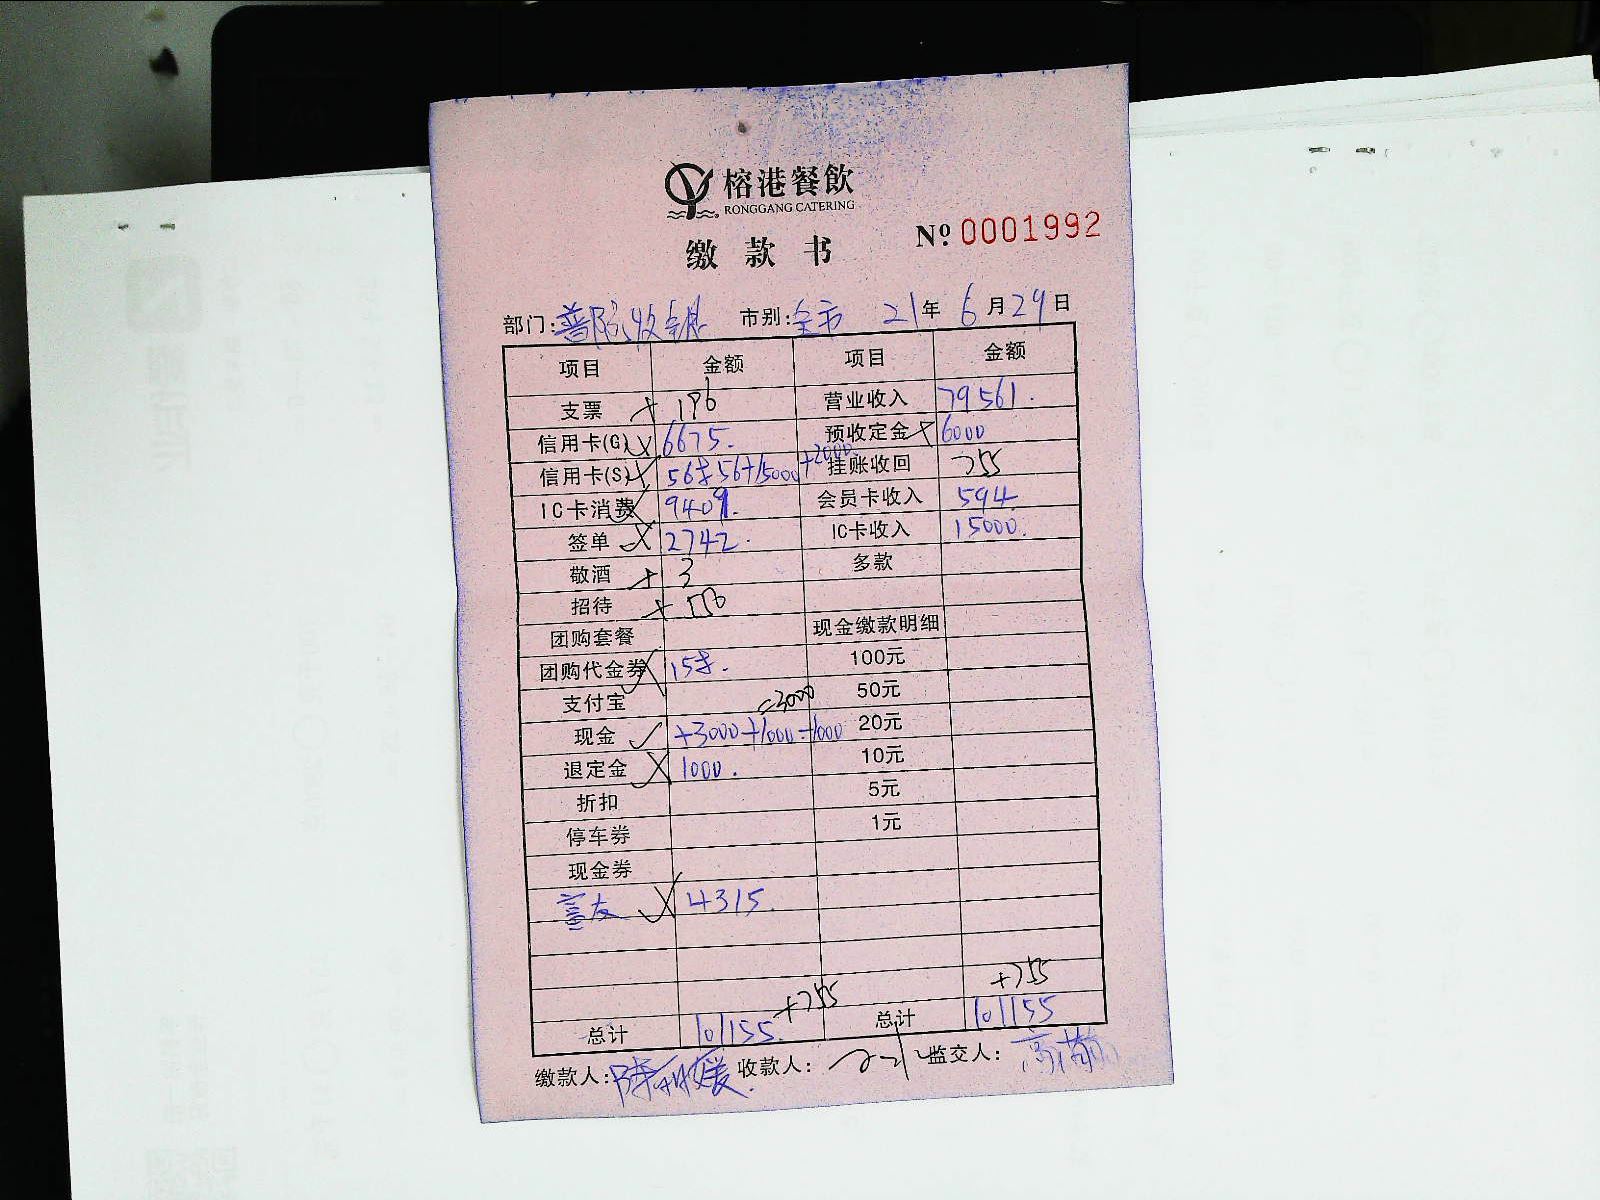 榕港餐飲
RONGGANG CATERING
缴款书 Nº 0001992
部门: 普陀收银 市别: 全市 21年6月29日
项目 金额 项目 金额
支票 + 196 营业收入 79561.
信用卡(G) 6675. 预收定金 6000
信用卡(S) +15000 +2000 挂账收回 755
IC卡消费 9409. 会员卡收入 594
签单 2742. IC卡收入 15000.
敬酒 + 3 多款
招待 +
团购套餐 现金缴款明细
团购代金券 100元
支付宝 50元
=3000
现金 +3000+1000-1000 20元
退定金 1000. 10元
折扣 5元
停车券 1元
现金券
富友 4315.
+755 +755
总计 101155. 总计 101155
缴款人: 收款人: 监交人: